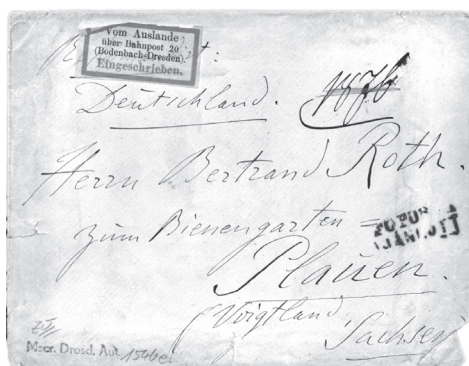 Vom Auslande
über Bahnpost 20
(Bodenbach-Dresden).
Eingeschrieben.
Deutschland.
Herrn Bertrand Roth.
zum Bienengarten =
Plauen.
Voigtland
Sachsen
Mscr. Dresd. Aut. 1546e